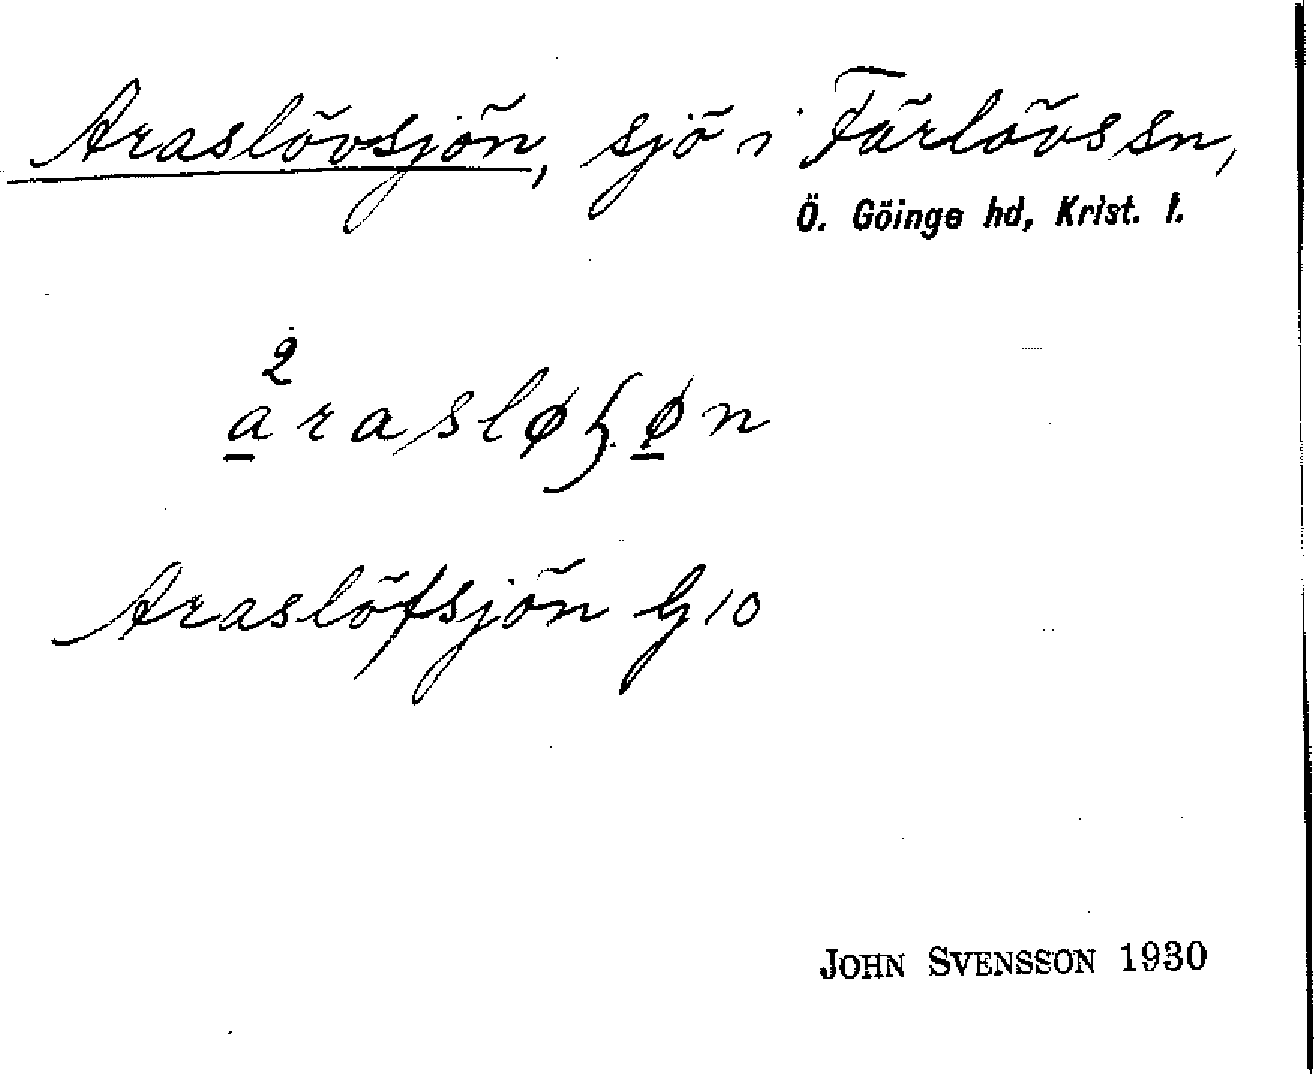 Araslövsjön, sjö i Färlövs sn,
Ö. Göinge hd, Krist. l.
Araslöfsjön G 10
JOHN SVENSSON 1930